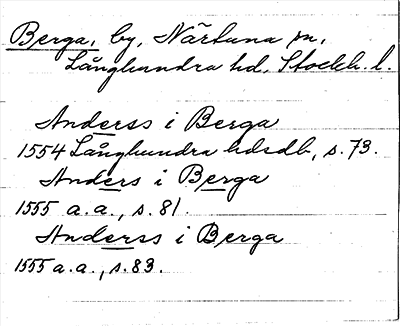 Berga, by, Närtuna sn,
Långhundra hd, Stockh. l.
Anderss i Berga
1554 Långhundra hdsdb, s. 73.
Anders i Berga
1555 a.a., s. 81.
Anderss i Berga
1555 a.a., s. 83.